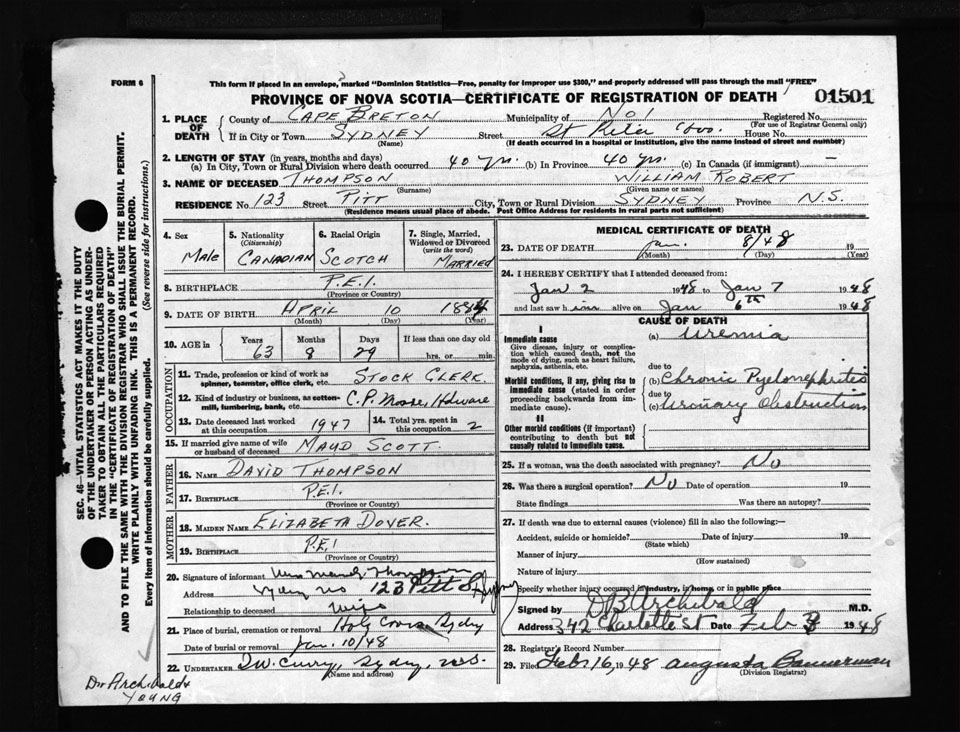 FORM 6
This form if placed in an envelope, marked "Dominion Statistics—Free, penalty for improper use $300," and properly addressed will pass through the mail "FREE"
PROVINCE OF NOVA SCOTIA—CERTIFICATE OF REGISTRATION OF DEATH
01501
1. PLACE OF DEATH
County of CAPE BRETON Municipality of No 1 Registered No.
(For use of Registrar General only)
If in City or Town SYDNEY Street House No.
(Name) (If death occurred in a hospital or institution, give the name instead of street and number)
2. LENGTH OF STAY (in years, months and days)
(a) In City, Town or Rural Division where death occurred 40 yrs. (b) In Province 40 yrs. (c) In Canada (if immigrant) —
3. NAME OF DECEASED THOMPSON WILLIAM ROBERT
(Surname) (Given name or names)
RESIDENCE No. 123 Street PITT City, Town or Rural Division SYDNEY Province N.S.
(Residence means usual place of abode. Post Office Address for residents in rural parts not sufficient)
4. Sex
Male
5. Nationality
(Citizenship)
CANADIAN
6. Racial Origin
SCOTCH
7. Single, Married, Widowed or Divorced
(write the word)
MARRIED
8. BIRTHPLACE P.E.I.
(Province or Country)
9. DATE OF BIRTH APRIL 10 1884
(Month) (Day) (Year)
10. AGE in Years Months Days If less than one day old
63 8 29 hrs. or min.
OCCUPATION
11. Trade, profession or kind of work as spinner, teamster, office clerk, etc. STOCK CLERK.
12. Kind of industry or business, as cotton-mill, lumbering, bank, etc. C.P. Moore, Hdware
13. Date deceased last worked at this occupation 1947
14. Total yrs. spent in this occupation 2
15. If married give name of wife or husband of deceased MAUD SCOTT.
FATHER
16. NAME DAVID THOMPSON
17. BIRTHPLACE P.E.I.
MOTHER
18. MAIDEN NAME ELIZABETH DOVER.
19. BIRTHPLACE P.E.I
(Province or Country)
20. Signature of informant Mrs Maud Thompson
Address 123 Pitt St Sydney
Relationship to deceased Wife
21. Place of burial, cremation or removal Holy Cross Sydney
Date of burial or removal Jan. 10/48
22. UNDERTAKER Curry, Sydney, N.S.
(Name and address)
Dr Archibald &
YOUNG
MEDICAL CERTIFICATE OF DEATH
23. DATE OF DEATH Jan. 8/48 19
(Month) (Day) (Year)
24. I HEREBY CERTIFY that I attended deceased from:
Jan 2 1948 to Jan 7 1948
and last saw him alive on Jan 6th 1948
CAUSE OF DEATH
I
Immediate cause
Give disease, injury or complication which caused death, not the mode of dying, such as heart failure, asphyxia, asthenia, etc.
(a) Uremia
due to
Morbid conditions, if any, giving rise to immediate cause (stated in order proceeding backwards from immediate cause).
(b) Chronic Pyelonephritis
due to
(c) Urinary Obstruction
II
Other morbid conditions (if important) contributing to death but not causally related to immediate cause.
25. If a woman, was the death associated with pregnancy? No
26. Was there a surgical operation? No Date of operation 19
State findings Was there an autopsy?
27. If death was due to external causes (violence) fill in also the following:—
Accident, suicide or homicide? Date of injury 19
(State which)
Manner of injury
(How sustained)
Nature of injury
Specify whether injury occurred in industry, in home, or in public place
Signed by DB Archibald M.D.
Address 342 Charlotte St Date Feb 3 1948
28. Registrar's Record Number
29. Filed Feb 16, 1948 Augusta Bannerman
(Division Registrar)
SEC. 46—VITAL STATISTICS ACT MAKES IT THE DUTY
OF THE UNDERTAKER OR PERSON ACTING AS UNDER-
TAKER TO OBTAIN ALL THE PARTICULARS REQUIRED
IN THE "CERTIFICATE OF REGISTRATION OF DEATH"
AND TO FILE THE SAME WITH THE DIVISION REGISTRAR WHO SHALL ISSUE THE BURIAL PERMIT.
WRITE PLAINLY WITH UNFADING INK. THIS IS A PERMANENT RECORD.
Every item of information should be carefully supplied. (See reverse side for instructions.)